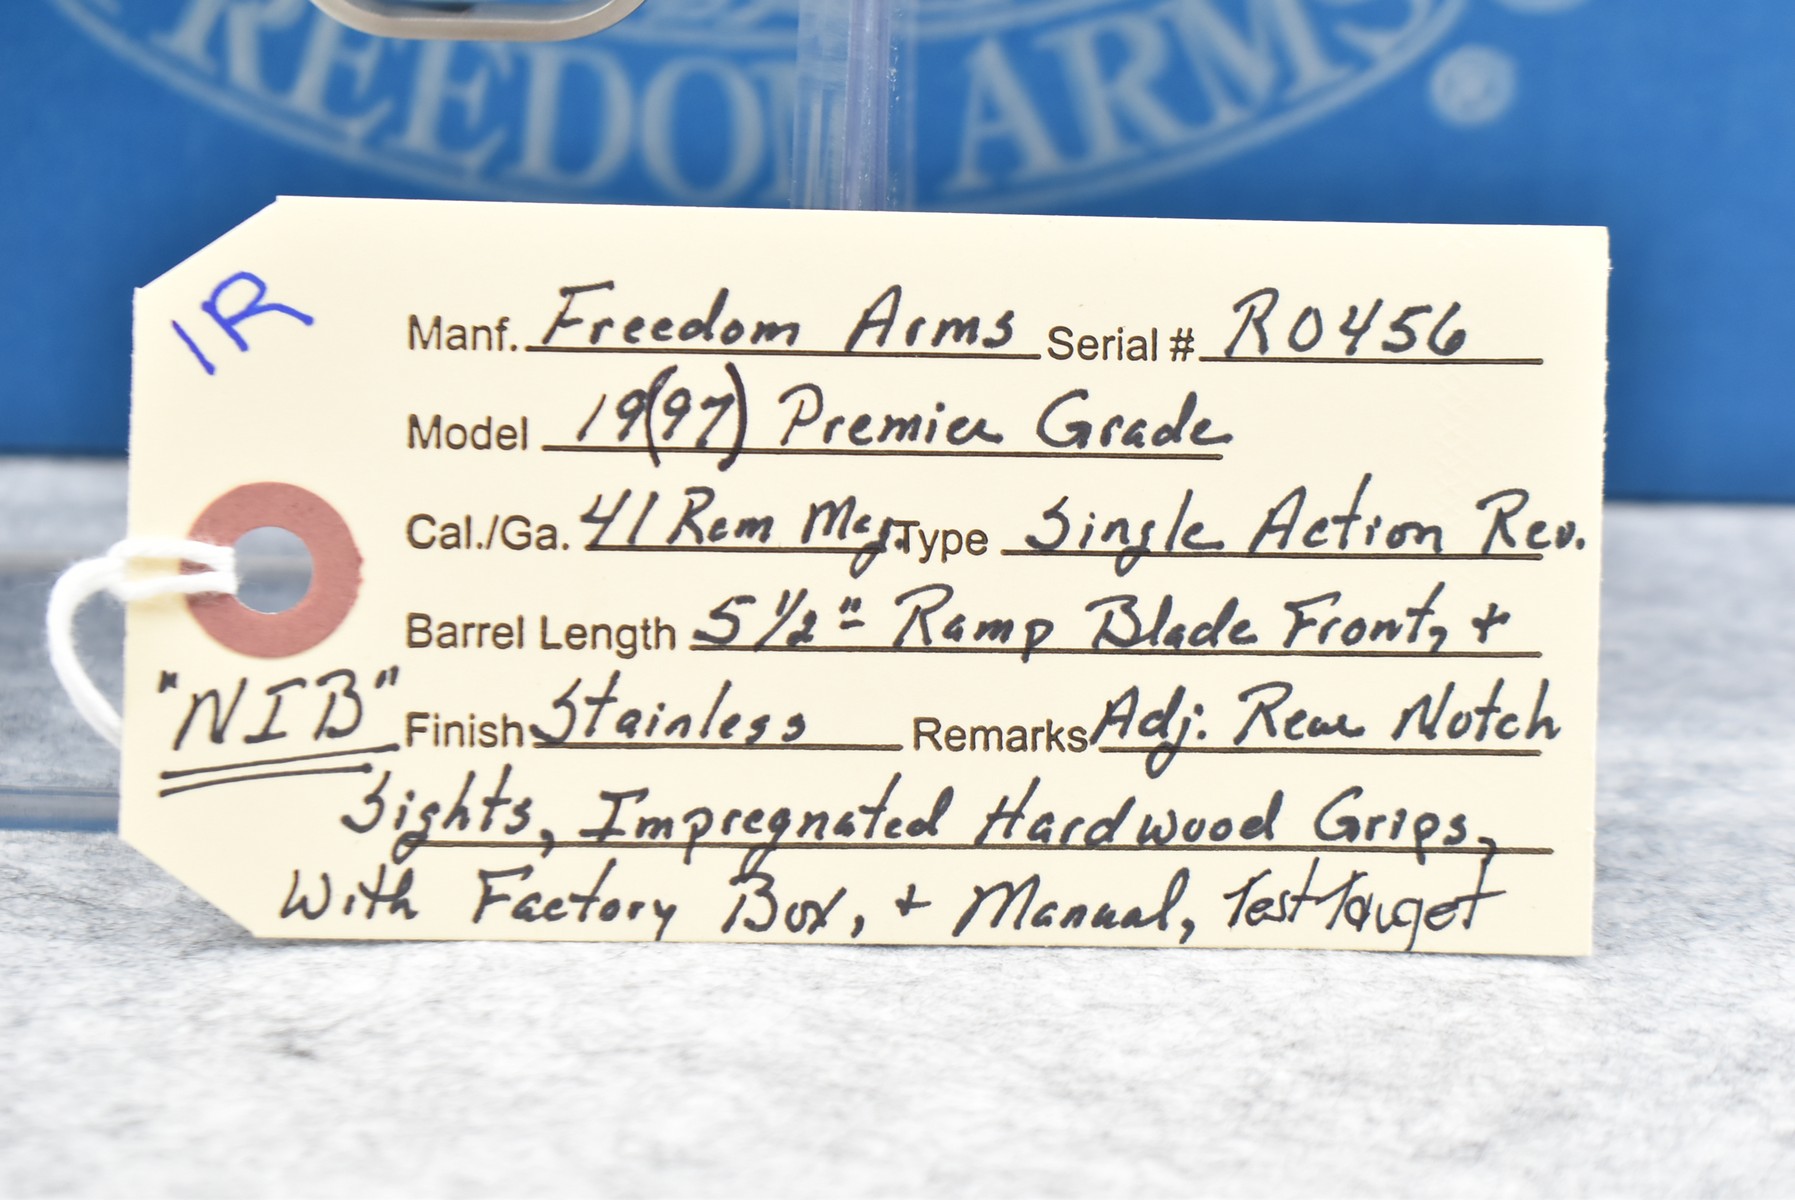 FREEDOM ARMS ®
1R
Manf. Freedom Arms Serial # R0456
Model 19(97) Premier Grade
Cal./Ga. 41 Rem Mag. Type Single Action Rev.
Barrel Length 5 1/2" Ramp Blade Front, +
"NIB" Finish Stainless Remarks Adj. Rear Notch
Sights, Impregnated Hardwood Grips,
With Factory Box, + Manual, Test Target